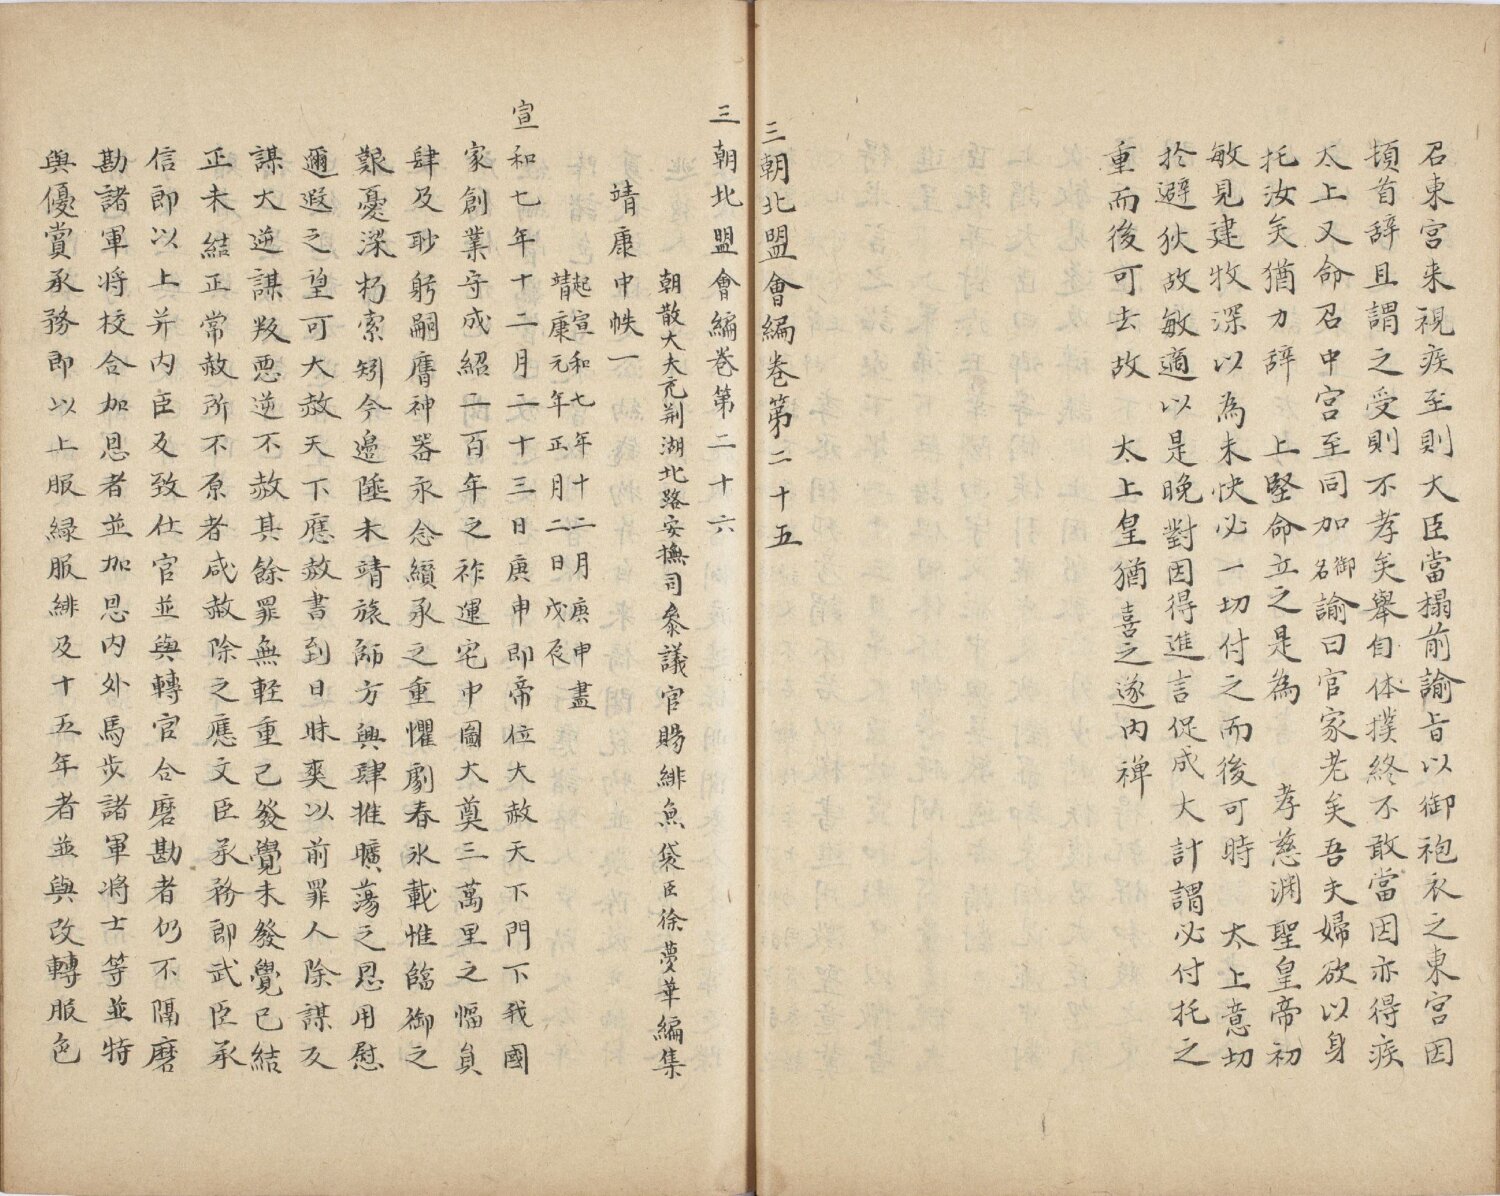 召東宮来視疾至則大臣當榻前諭旨以御袍衣之東宮因
頓首辞且謂之受則不孝矣舉自体撲終不敢當因亦得疾
太上又命召中宮至同加御名諭曰官家老矣吾夫婦欲以身
托汝矣猶力辞 上堅命立之是為 孝慈淵聖皇帝初
敏見建牧深以為未快必一切付之而後可時 太上意切
扵避狄故敏適以是晚對因得進言促成大計謂必付托之
重而後可去故 太上皇猶喜之遂内禅
三朝北盟會編卷第二十五
三朝北盟會編卷第二十六
朝散大夫充荆湖北路安撫司叅議官賜緋魚袋臣徐夢莘編集
靖康中帙一
起宣和七年十二月庚申盡
靖康元年正月二日戊辰
宣和七年十二月二十三日庚申即帝位大赦天下門下我國
家創業守成紹二百年之祚運宅中圖大奠三萬里之幅員
肆及眇躬嗣膺神器永念纘承之重懼劇春氷載惟臨御之
艱憂深朽索矧今邊陲未靖旅師方興肆推曠蕩之恩用慰
邇遐之望可大赦天下應赦書到日昧爽以前罪人除謀反
謀大逆謀叛悪逆不赦其餘罪無軽重已發覺未發覺已結
正未結正常赦所不原者咸赦除之應文臣承務郎武臣承
信郎以上并内臣及致仕官並與轉官合磨勘者仍不隔磨
勘諸軍将校合加恩者並加恩内外馬步諸軍将士等並特
與優賞承務郎以上服緑服緋及十五年者並與改轉服色